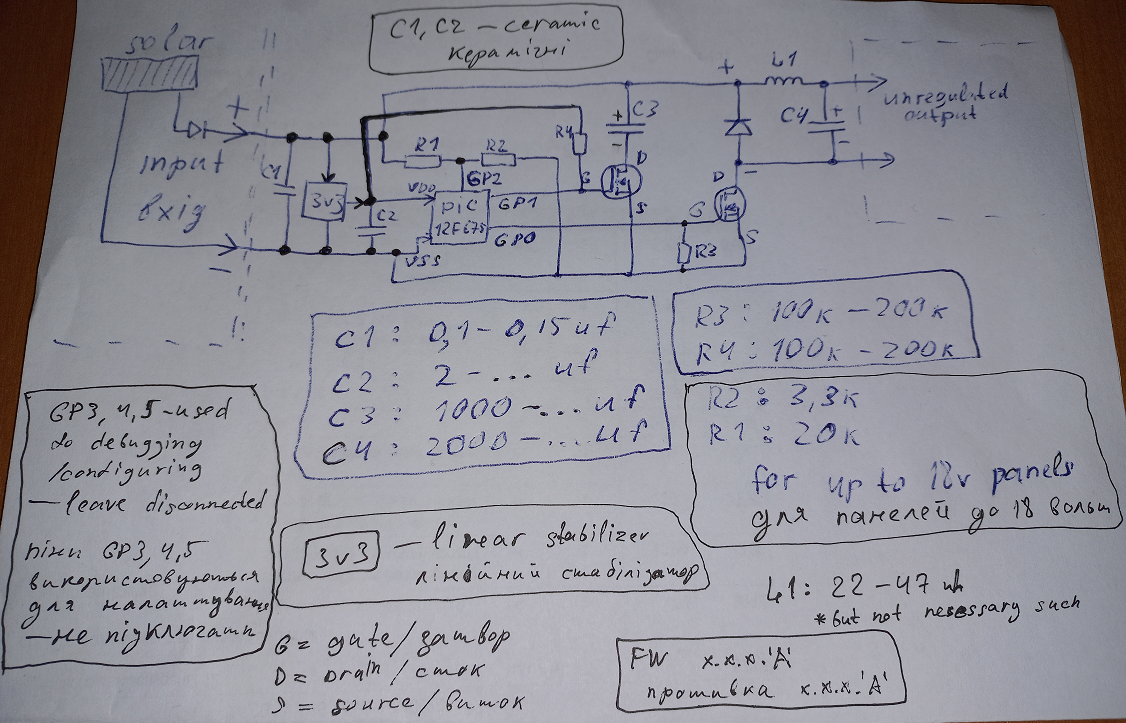 C1, C2 – ceramic
керамічні
solar
+
input
вхід
–
C1
3v3
C2
R1
R2
VDD
GP2
PIC
12F675
GP1
GP0
VSS
R4
+
C3
–
D
G
S
R3
+
L1
C4
+
–
–
D
G
S
unregulated
output
C1: 0,1 – 0,15 uf
C2: 2 – ... uf
C3: 1000 – ... uf
C4: 2000 – ... uf
R3: 100к – 200к
R4: 100к – 200к
R2: 3,3к
R1: 20к
for up to 18v panels
для панелей до 18 вольт
GP3, 4, 5 – used
to debugging
/configuring
– leave disconnected
піни GP3, 4, 5
використовуються
для налаштування
– не підключати
3v3 – linear stabilizer
лінійний стабілізатор
L1: 22 – 47 uh
*but not nesessary such
G = gate/затвор
D = Drain/сток
S = source/виток
FW x.x.x.'A'
прошивка x.x.x.'A'